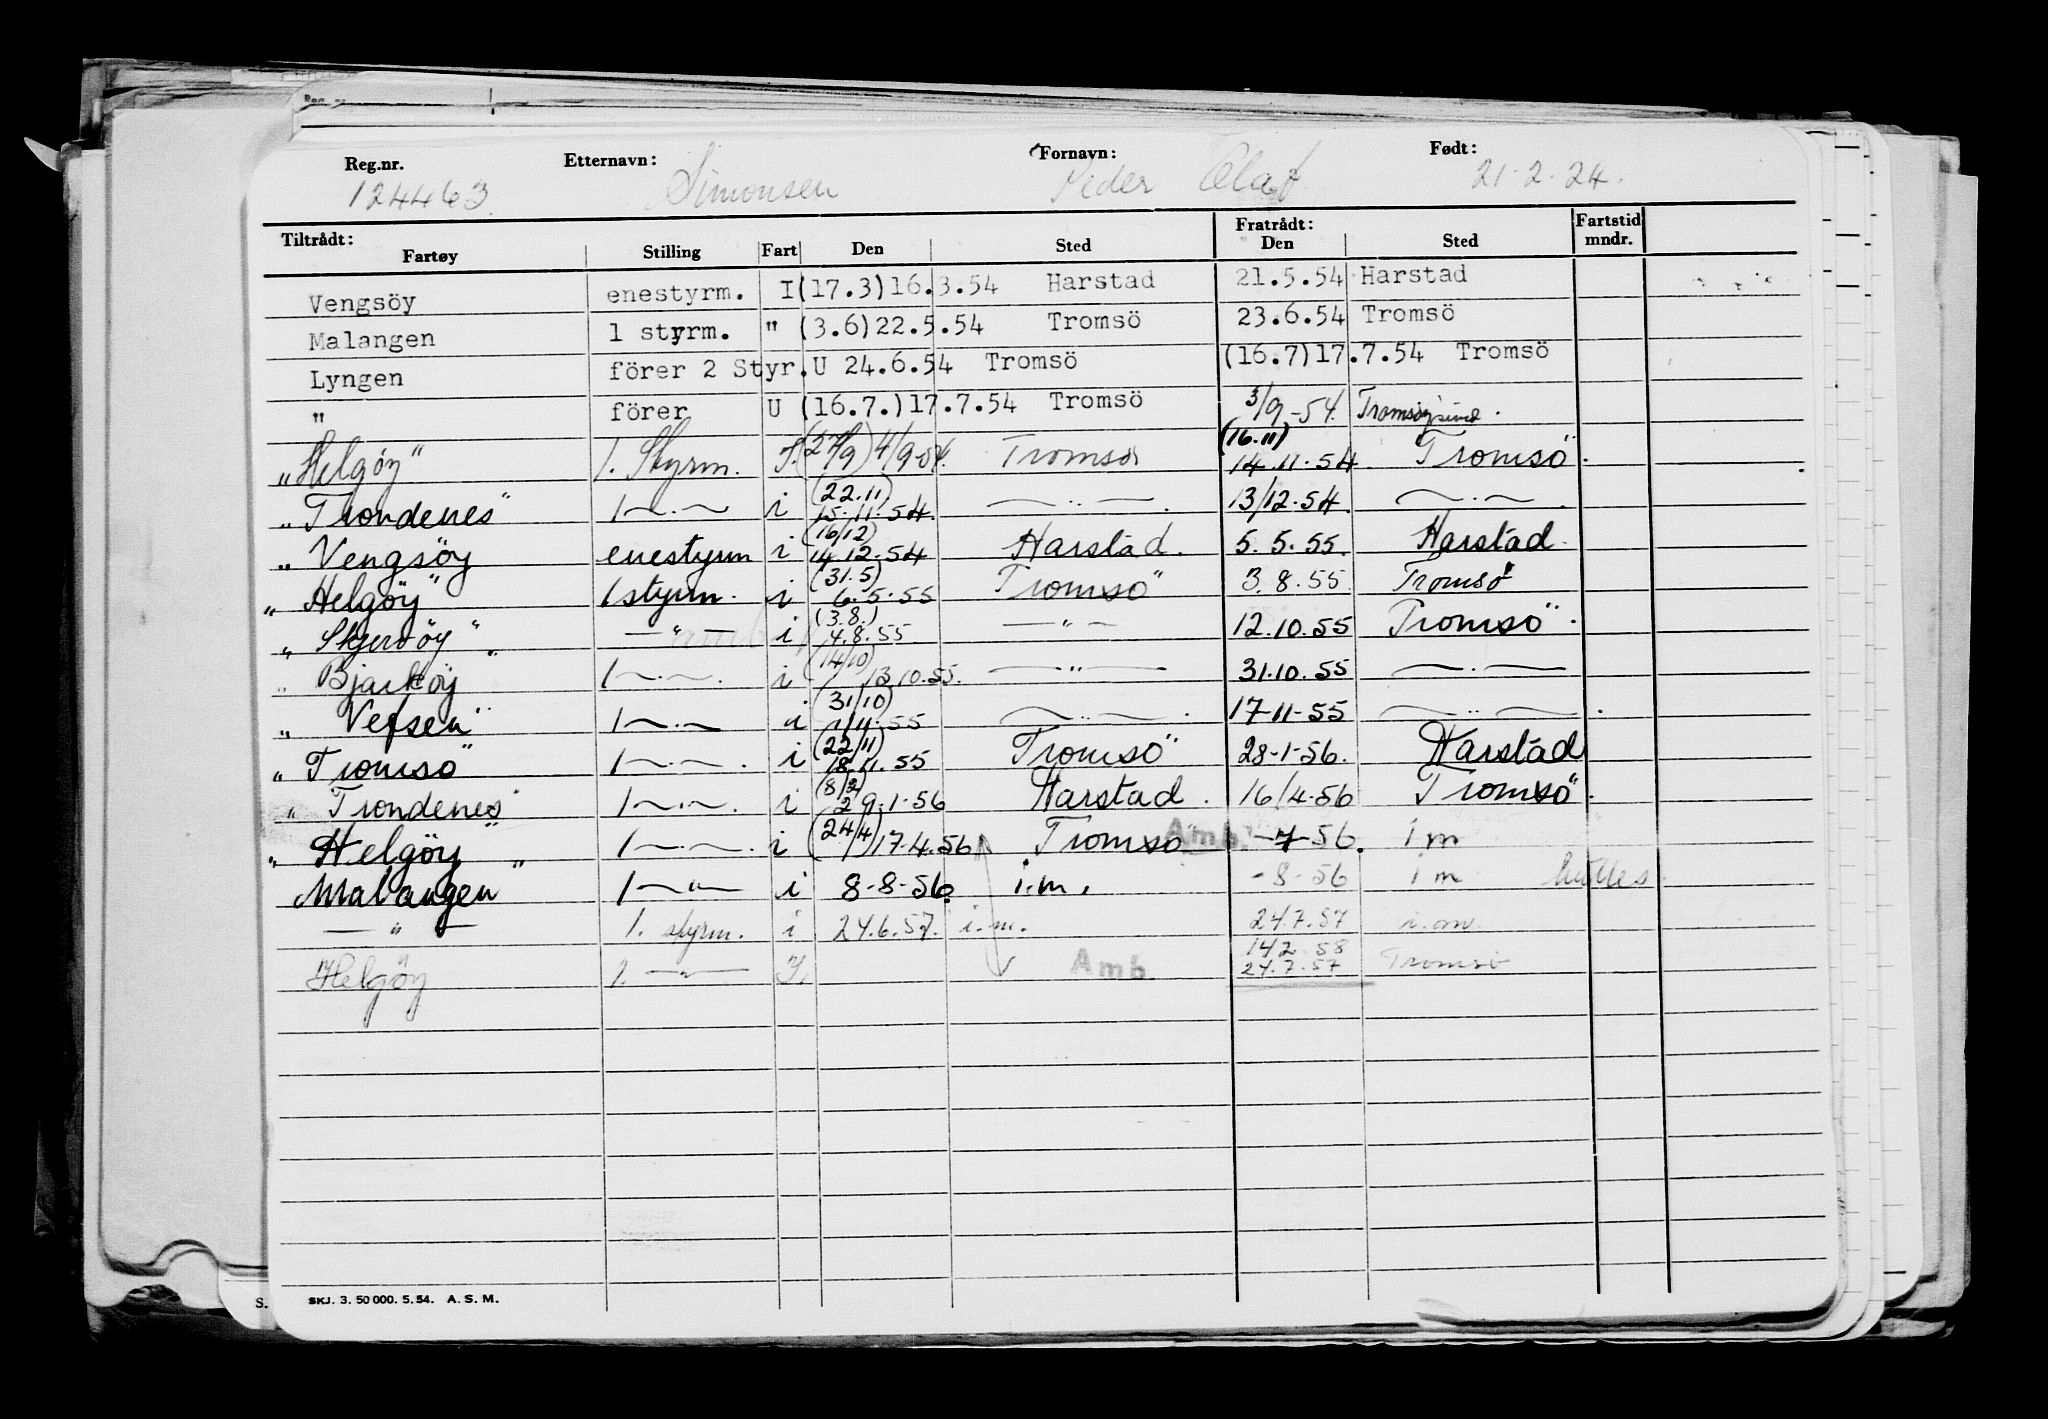 Reg.nr. Etternavn: Fornavn: Født:
124463 Simonsen Peder Olaf 21.2.24.
Tiltrådt: Fratrådt: Fartstid
Fartøy Stilling Fart Den Sted Den Sted mndr.
Vengsöy enestyrm. I (17.3)16.3.54 Harstad 21.5.54 Harstad
Malangen 1 styrm. " (3.6)22.5.54 Tromsö 23.6.54 Tromsö
Lyngen förer 2 Styr. U 24.6.54 Tromsö (16.7)17.7.54 Tromsö
" förer U (16.7.)17.7.54 Tromsö 3/9-54. Tromsöysund.
"Helgöy" 1. Styrm. I. (27/9) 4/9-54. Tromsö (16.11) 14.11.54 Tromsö.
"Trondenes" 1 —"— i (22.11) 15.11.54. —"— 13/12.54. —"—
"Vengsöy enestyrm i (16/12) 14.12.54 Harstad. 5.5.55. Harstad.
"Helgöy" 1 styrm. i (31.5) 6.5.55 Tromsö 3.8.55 Tromsö
"Skjervöy" —"— i (3.8.) 4.8.55 —"— 12.10.55 Tromsö.
" Bjarköy" 1 —"—. i (14/10) 13.10.55. —"— 31.10.55 —"—
" Vefsen" 1 —"— i (31/10) 1/11.55 —"—. 17-11-55 —"—.
"Tromsö" 1 —"—. i (22/11) 18.11.55 Tromsö 28-1-56. Harstad
"Trondenes" 1 —"—. i (8/2) 29.1.56 Harstad. 16/4.56 Tromsö.
"Helgöy" 1 —"—. i (24/4) 17.4.56 Tromsö Amb. -7-56. i m
Malangen 1 —"— i 8-8-56. i.m. -8-56 i m
—"— 1. styrm. i 24.6.57. i.m. 24.7.57 i.m.
Helgöy 1. —"— I. Amb 24.7.57 14 2.58 Tromsö
SKJ. 3. 50 000. 5. 54. A. S. M.
S.